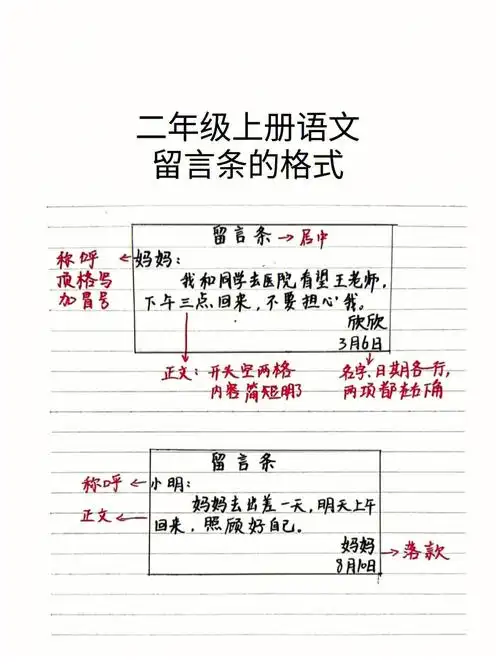 二年级上册语文
留言条的格式
留言条 → 居中
称呼 ← 妈妈：
顶格写
加冒号
我和同学去医院看望王老师，
下午三点回来，不要担心我。
欣欣
3月6日
正文：开头空两格
内容简短明了
名字、日期各一行，
两项都在右下角
留言条
称呼 ← 小明：
妈妈去出差一天，明天上午
正文 ← 回来，照顾好自己。
妈妈
8月10日
→ 落款